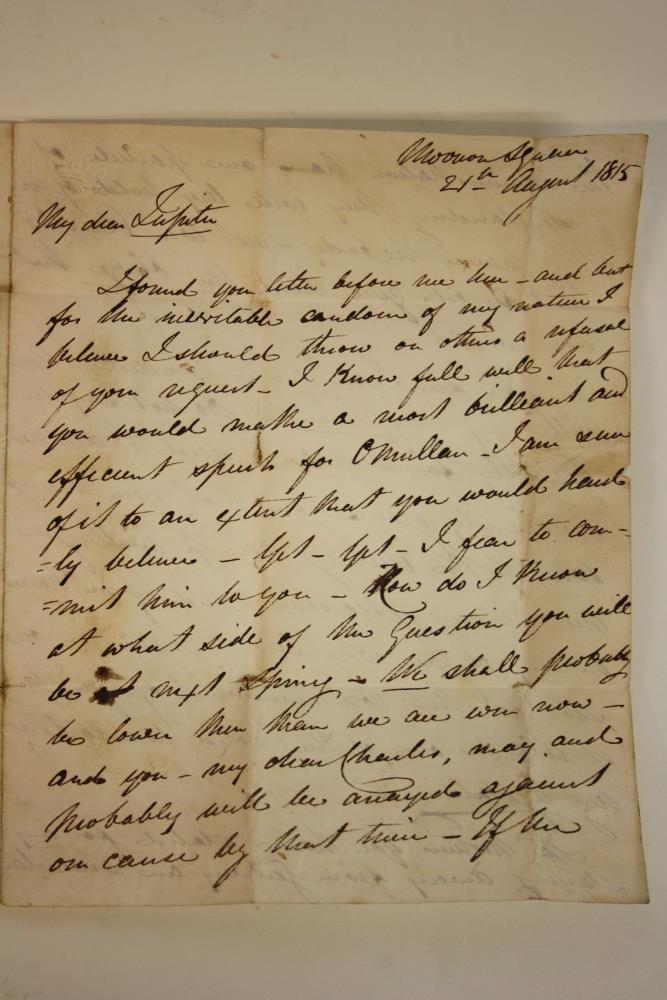 Merrion Square
21th August 1815
My dear Jupiter
I found your letter before me here - and but
for the inevitable candour of my nature I
believe I should throw on others a refusal
of your request - I know full well that
you would make a most brilliant and
efficient speech for O'Mullan - I am sure
of it to an extent that you would hard
=ly believe - Yet - Yet - I fear to com-
=mit him to you - How do I know
at what side of the Question you will
be at next Spring - We shall probably
be lower then than we are even now -
and you - my dear Charles, may and
probably will be arrayed against
our cause by that time - If the